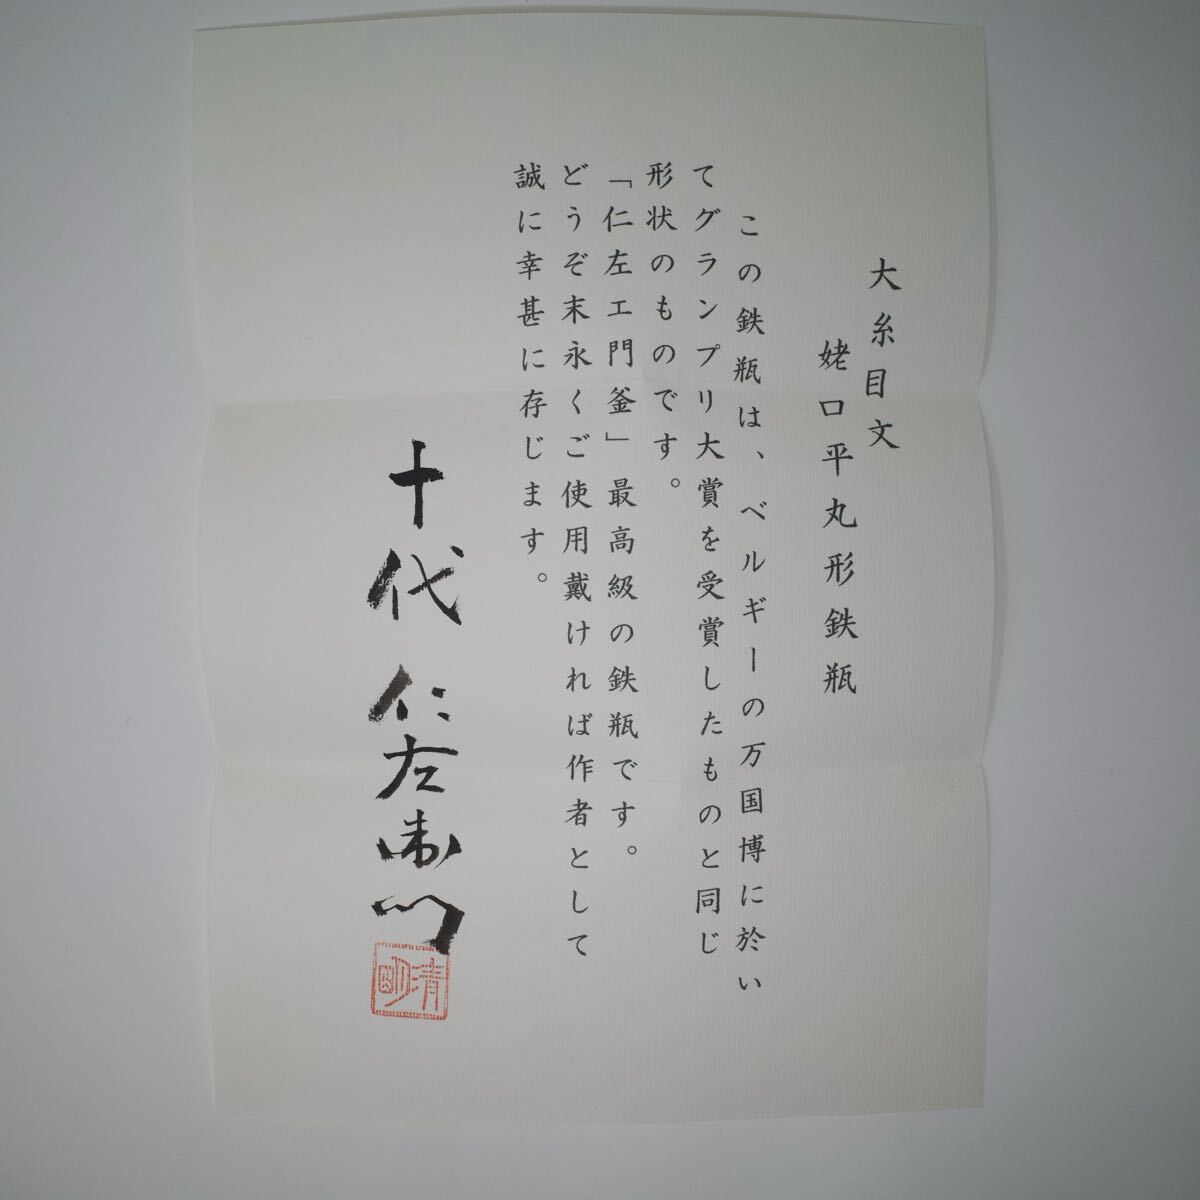 大糸目文
姥口平丸形鉄瓶
この鉄瓶は、ベルギーの万国博に於い
てグランプリ大賞を受賞したものと同じ
形状のものです。
「仁左エ門釜」最高級の鉄瓶です。
どうぞ末永くご使用戴ければ作者として
誠に幸甚に存じます。
十代 仁左衛門
清明